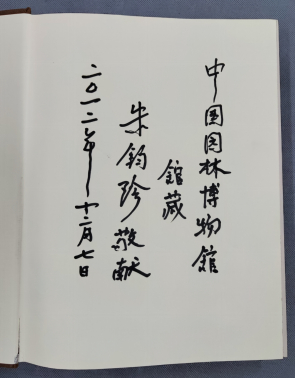 中国园林博物馆
馆藏
朱钧珍敬献
二〇一二年十二月七日